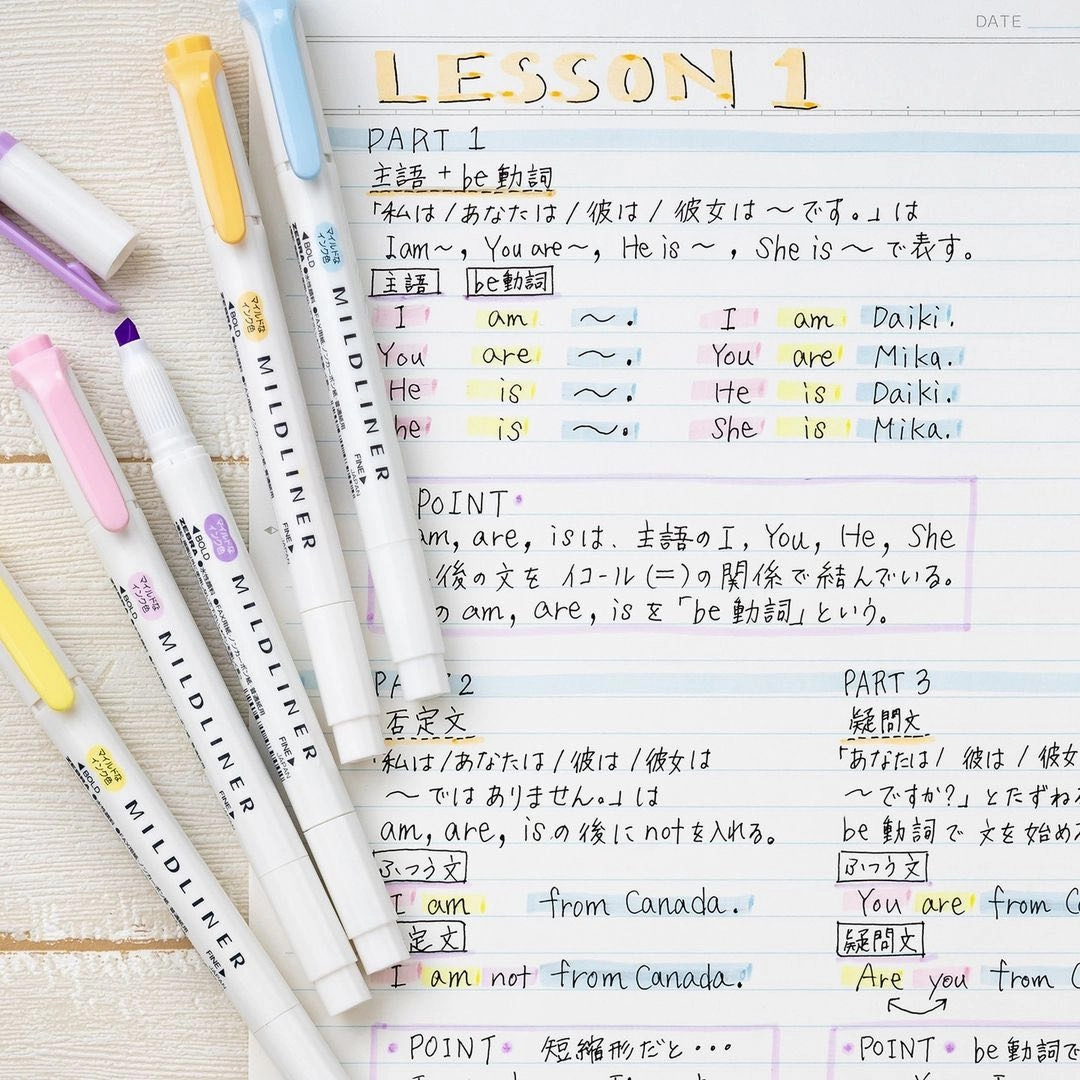 DATE
LESSON 1
PART 1
主語 + be 動詞
「私は / あなたは / 彼は / 彼女は 〜です。」は
I am〜, You are〜, He is 〜 , She is 〜 で表す。
主語 be動詞
I am 〜. I am Daiki.
You are 〜. You are Mika.
He is 〜. He is Daiki.
he is 〜. She is Mika.
POINT
am, are, isは、主語の I, You, He, She
後の文を イコール (=) の関係で結んでいる。
の am, are, is を 「be 動詞」という。
PA 2
否定文
私は / あなたは / 彼は / 彼女は
〜ではありません。」は
am, are, isの後にnotを入れる。
ふつう文
I am from Canada.
定文
I am not from Canada.
POINT 短縮形だと・・・
PART 3
疑問文
「あなたは / 彼は / 彼女
〜ですか?」とたずねる
be 動詞で 文を始める
ふつう文
You are from C
疑問文
Are you from C
POINT be 動詞で
マイルドな
インク色
BOLD
MILDLINER
FINE
JAPAN
マイルドな
インク色
BOLD
MILDLINER
FINE
JAPAN
マイルドな
インク色
ZEBRA
BOLD
MILDLINER
FINE
JAPAN
マイルドな
インク色
BOLD
MILDLINER
FINE
マイルドな
インク色
BOLD
MILDLINER
FINE
JAPAN